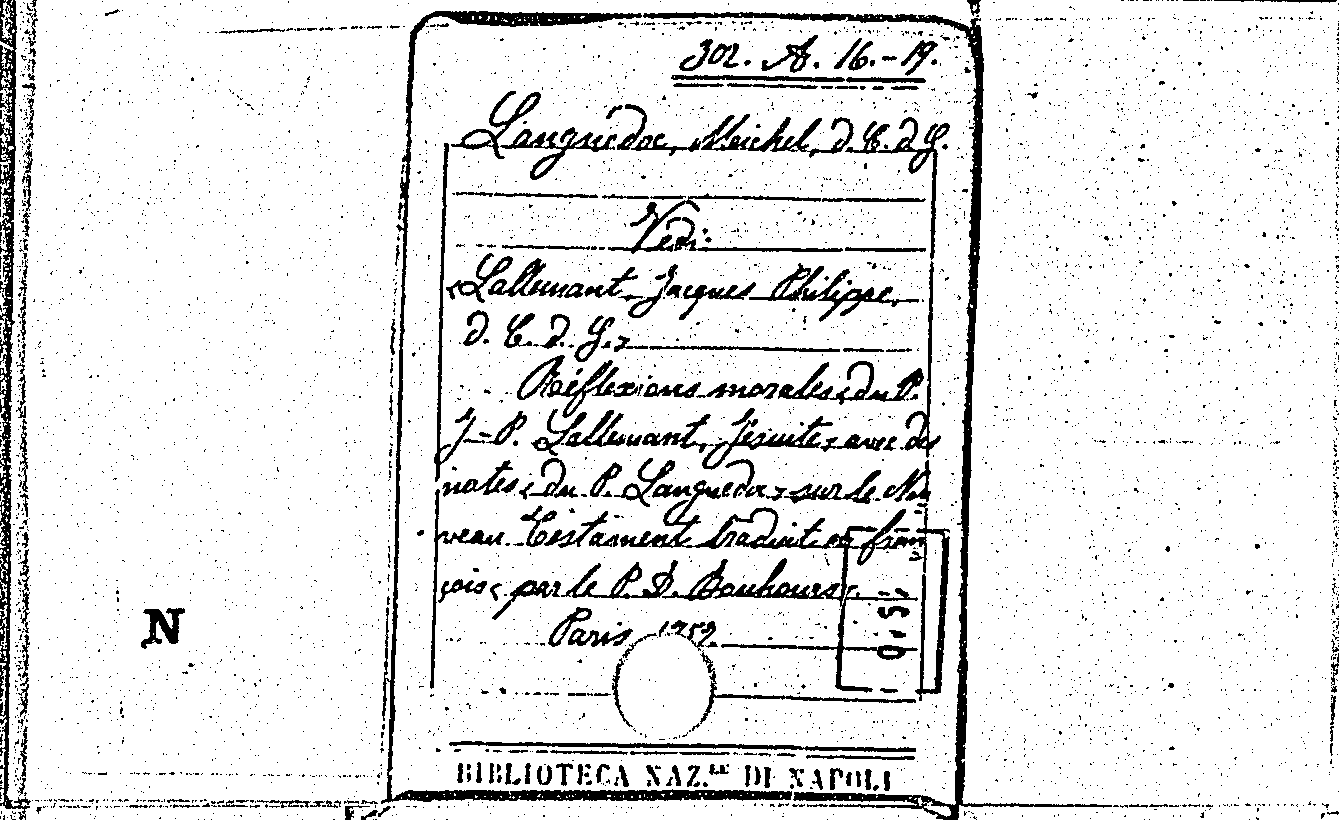 302. A. 16.-19.
Languedoc, Michel, d. C. d. G.
Vedi:
<Lallemant, Jacques Philippe,
d. C. d. G.>
Réflexions morales <du P.
J-P. Lallemant, Jésuite> avec des
notes <du P. Languedoc> sur le Nou
veau Testament traduit en fran
çois <par le P. D. Bouhours>.
Paris 1752
N
BIBLIOTECA NAZ.LE DI NAPOLI